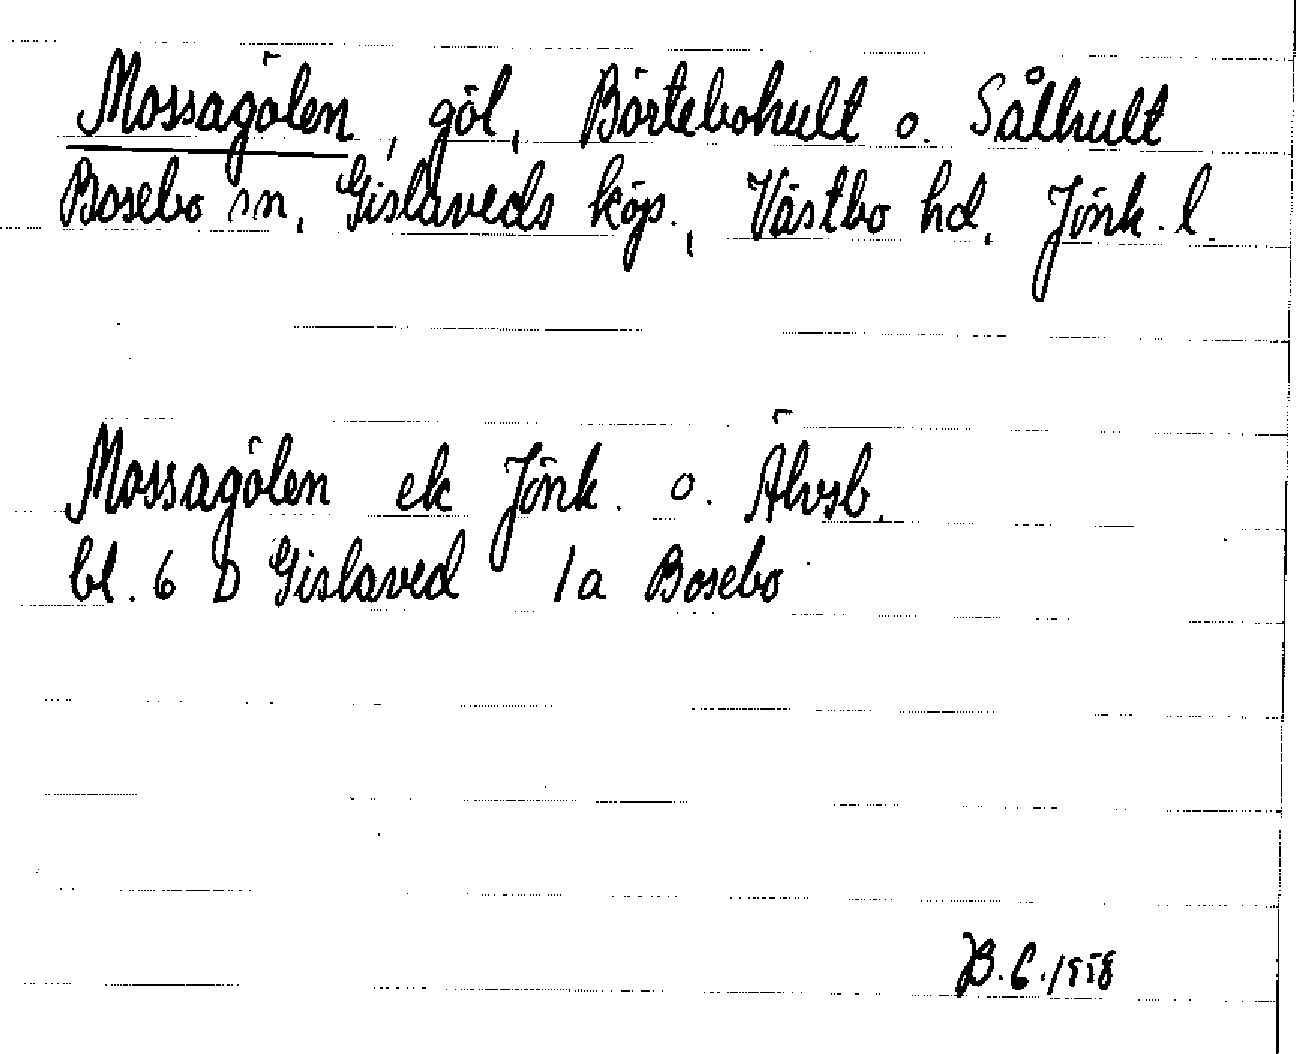 Mossagölen, göl, Börtebohult o. Sålhult
Bosebo sn, Gislaveds köp., Västbo hd, Jönk. l.
Mossagölen ek Jönk. o. Älvsb.
bl. 6 D Gislaved 1a Bosebo
B.C.